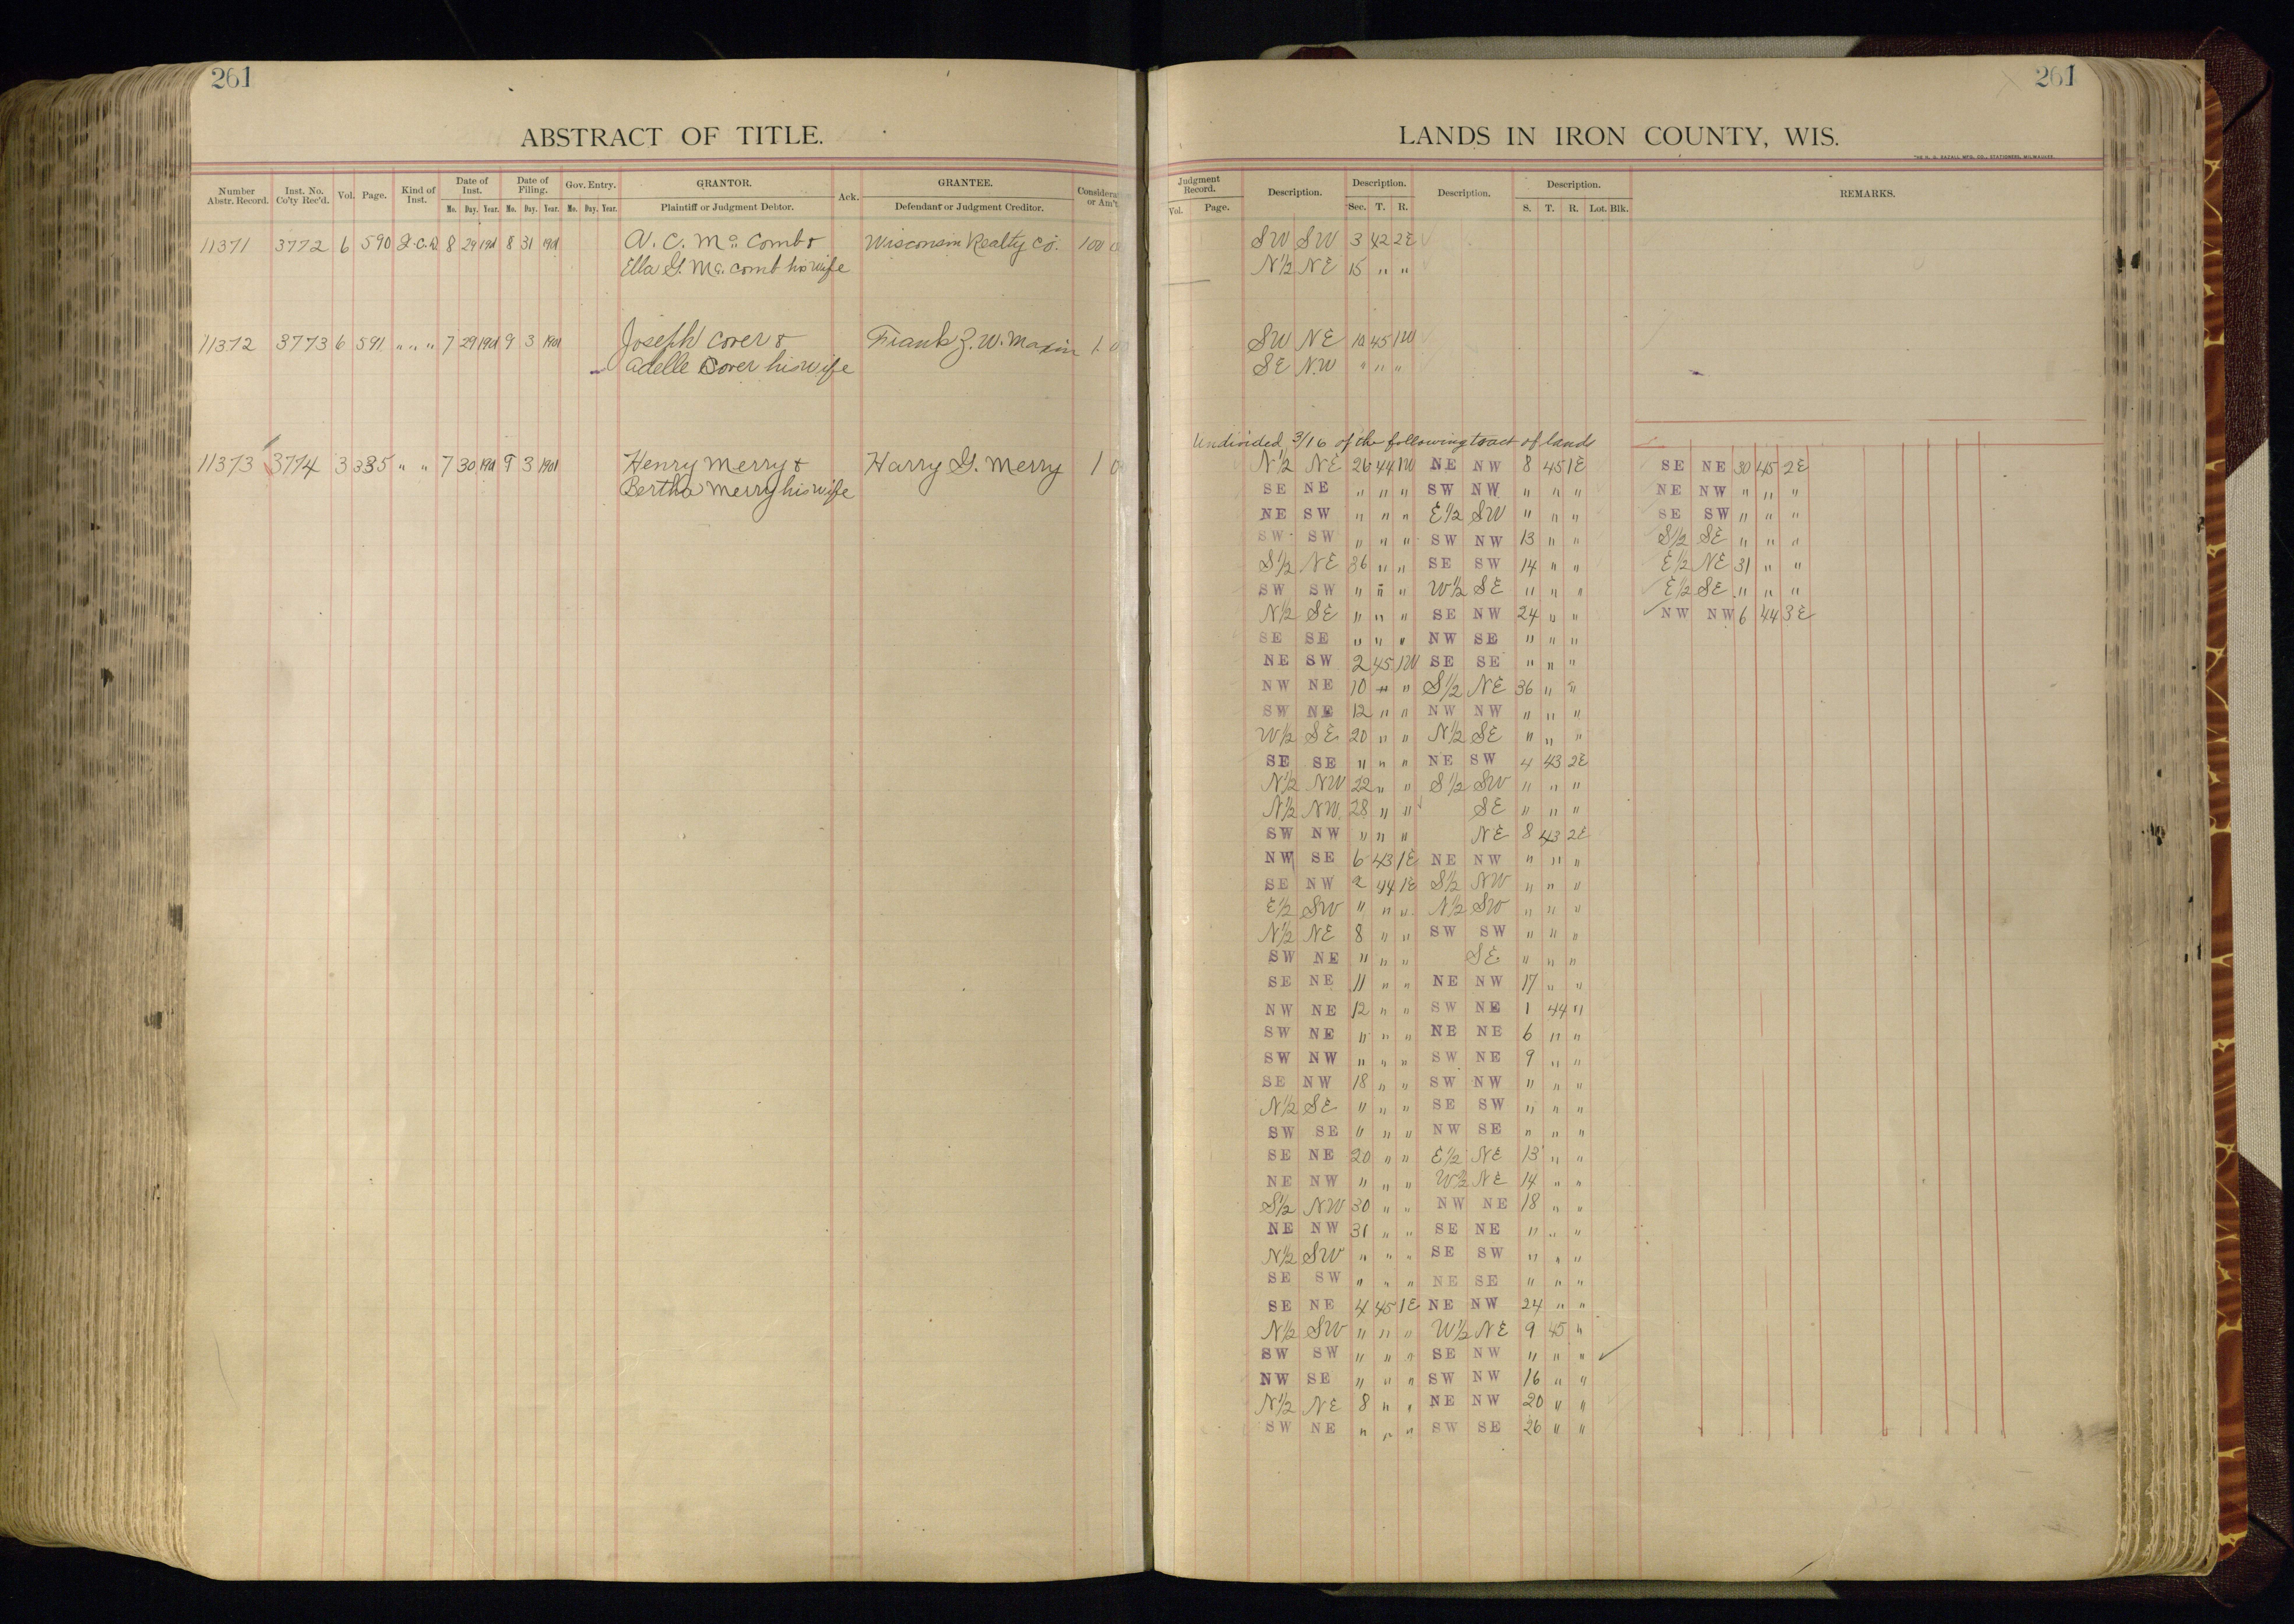 261
ABSTRACT OF TITLE.
Number Abstr. Record. Inst. No. Co'ty Rec'd. Vol. Page. Kind of Inst. Date of Inst. Mo. Day. Year. Date of Filing. Mo. Day. Year. Gov. Entry. Mo. Day. Year. GRANTOR. Plaintiff or Judgment Debtor. Ack. GRANTEE. Defendant or Judgment Creditor.
11371 3772 6 590 Q.C.D. 8 29 1901 8 31 1901 A. C. Mc. Comb & Wisconsin Realty Co. 100
Ella G. Mc. Comb his wife
11372 3773 6 591 " " " 7 29 1901 9 3 1901 Joseph Cover & Frank Z. W. Maxim 1
Adelle Cover his wife
11373 3774 3 335 " " 7 30 1901 9 3 1901 Henry Merry & Harry G. Merry 1
Bertha Merry his wife
261
LANDS IN IRON COUNTY, WIS.
Judgment Record. Vol. Page. Description. Description. Sec. T. R. Description. Description. S. T. R. Lot. Blk. REMARKS.
SW SW 3 42 2E
N½ NE 15 " "
SW NE 10 45 1W
SE NW " " "
Undivided 3/16 of the following tract of lands
N½ NE 26 44 1W NE NW 8 45 1E SE NE 30 45 2E
SE NE " " " SW NW " " " NE NW " " "
NE SW " " " E½ SW " " " SE SW " " "
SW SW " " " SW NW 13 " " S½ SE " " "
S½ NE 36 " " SE SW 14 " " E½ NE 31 " "
SW SW " " " W½ SE " " " E½ SE " " "
N½ SE " " " SE NW 24 " " NW NW 6 44 3E
SE SE " " " NW SE " " "
NE SW 2 45 1W SE SE " " "
NW NE 10 " " S½ NE 36 " "
SW NE 12 " " NW NW " " "
W½ SE 20 " " N½ SE " " "
SE SE " " " NE SW 4 43 2E
N½ NW 22 " " S½ SW " " "
N½ NW 28 " " SE " " "
SW NW " " " NE 8 43 2E
NW SE 6 43 1E NE NW " " "
SE NW 2 44 1E S½ NW " " "
E½ SW " " " N½ SW " " "
N½ NE 8 " " SW SW " " "
SW NE " " " SE " " "
SE NE 11 " " NE NW 17 " "
NW NE 12 " " SW NE 1 44 "
SW NE " " " NE NE 6 " "
SW NW " " " SW NE 9 " "
SE NW 18 " " SW NW " " "
N½ SE " " " SE SW " " "
SW SE " " " NW SE " " "
SE NE 20 " " E½ NE 13 " "
NE NW " " " W½ NE 14 " "
S½ NW 30 " " NW NE 18 " "
NE NW 31 " " SE NE " " "
N½ SW " " " SE SW " " "
SE SW " " " NE SE " " "
SE NE 4 45 1E NE NW 24 " "
N½ SW " " " W½ NE 9 45 "
SW SW " " " SE NW " " " ✓
NW SE " " " SW NW 16 " "
N½ NE 8 " " NE NW 20 " "
SW NE " " " SW SE 26 " "